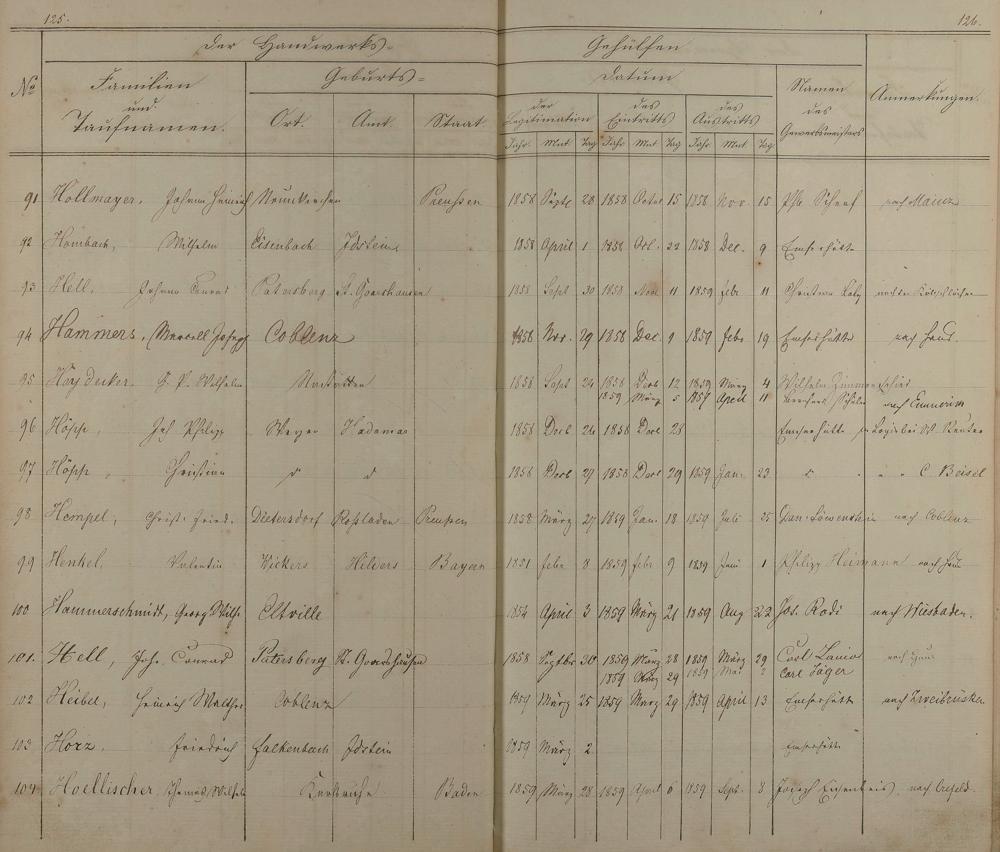 125. 126.
Der Handwerks- Gehülfen
No Familien und Taufnamen. Geburts- Ort. Amt. Staat. Datum der Legitimation des Eintritts des Austritts Namen des Gewerbsmeisters Anmerkungen.
Jahr. Mnt. Tag Jahr Mnt Tag Jahr Mnt. Tag
91 Hollmayer. Johann Heinrich Neunkirchen Preußen 1858 Septr 28 1858 Octbr 15 1858 Nov. 15 nach Mainz
92 Hombach, Wilhelm Eisenbach Idstein 1858 April 1 1858 Oct. 22 1858 Dec. 9 Emserhütte
93 Hell. Johann Conrad Patersberg St. Goarshausen 1858 Sept 30 1858 Nov. 11 1859 Febr 11 Christian
94 Hammers, Marcell Joseph Coblenz 1858 Nov. 29 1858 Dec. 9 1859 Febr 19 Emserhütte nach Haus.
95 Heydecker. G. P. Wilhelm Nastätten 1858 Sept 24 1858 Decb 12 1859 März 4 Wilhelm
1859 März 5 1859 April 11 nach
96 Höpp, Joh Philipp Weyer Hadamar 1858 Decb 26 1858 Decb 28 Emserhütte
97 Höpp, Christian " " 1858 Decb 29 1858 Decb 29 1859 Jan. 23 " " " C. Beisel
98 Hempel, Christ. Fried. Dietersdorf Roßladen Preußen 1858 März 27 1859 Jan. 18 1859 Juli 25 Dan. Löwenstein nach Coblenz
99 Henkel, Valentin Wickers Hilders Bayern 1851 Febr 8 1859 Febr 9 1859 Juni 1 Philipp Heimann nach Haus
100 Hammerschmidt, Georg Wilh. Eltville 1854 April 3 1859 März 21 1859 Aug 22 Jos. Rodi nach Wiesbaden.
101. Hell, Joh. Conrad Patersberg St. Goarshausen 1858 Septbr 30 1859 März 28 1859 März 29 Carl nach Haus
1859 März 29 1859 Mai 2 Carl Jäger
102 Heibel, Heinrich Walther Coblenz 1859 März 25 1859 März 29 1859 April 13 Emserhütte nach Zweibrücken
103 Horz. Friedrich Falkenbach Idstein 1859 März 2 Emserhütte
104 Hoellischer Thomas Wilhelm Karlsruhe Baden 1859 März 28 1859 April 6 1859 Sept. 8 Joseph nach Crefeld.